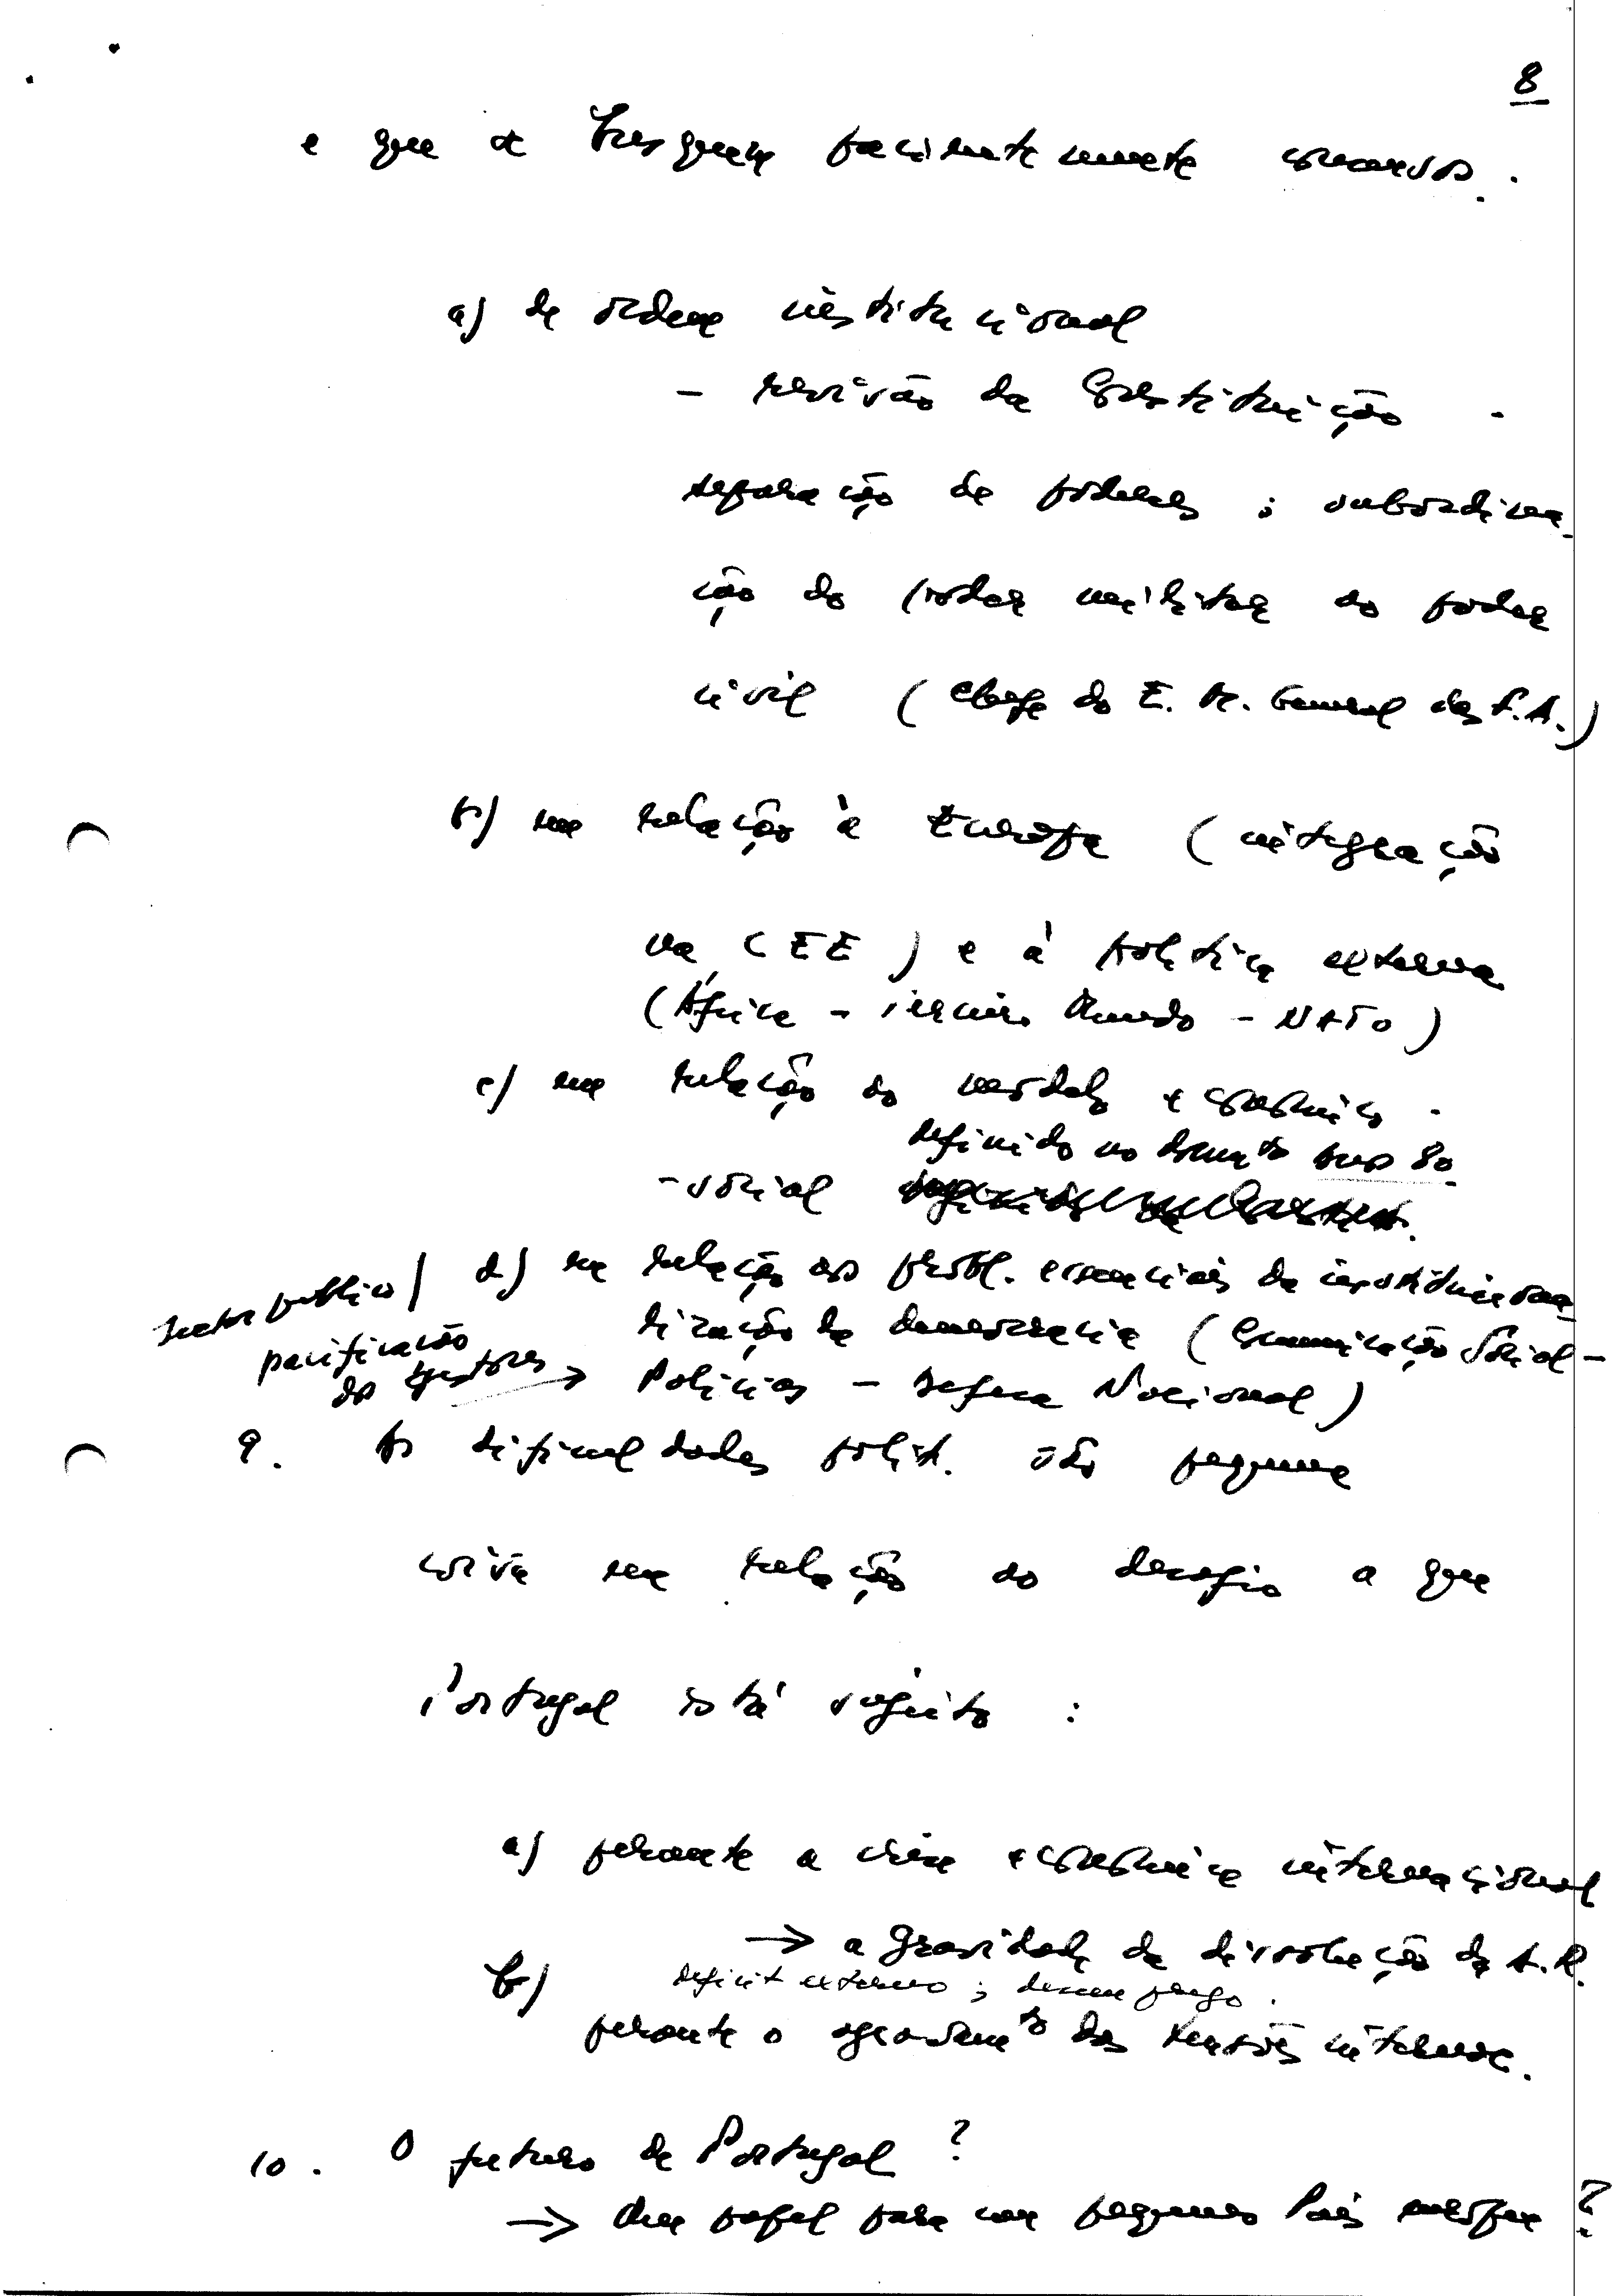 8
e que os Portugueses pacientemente
a) de ordem institucional
- revisão da Constituição -
separação de poderes ; subordina-
ção do poder militar ao poder
civil (Chefe do E. M. General das F.A.)
b) em relação à Europa (integração
na CEE) e à política externa
(África - Terceiro Mundo - NATO)
c) em relação ao modelo económico -
definido no docum.to 80
- social
d) em relação aos probl. essenciais da instituciona-
sector público /
lização da democracia (Comunicação Social -
pacificação
dos gestores → Polícias - Defesa Nacional)
9. As dificuldades polít. são pequena
coisa em relação ao desafio a que
Portugal está sujeito :
a) perante a crise económica internacional
→ a gravidade da dissolução da A.R.
b) deficit externo ; desemprego.
perante o agravam.to das tensões internas.
10. O futuro de Portugal ?
→ Que papel para um pequeno País europeu ?